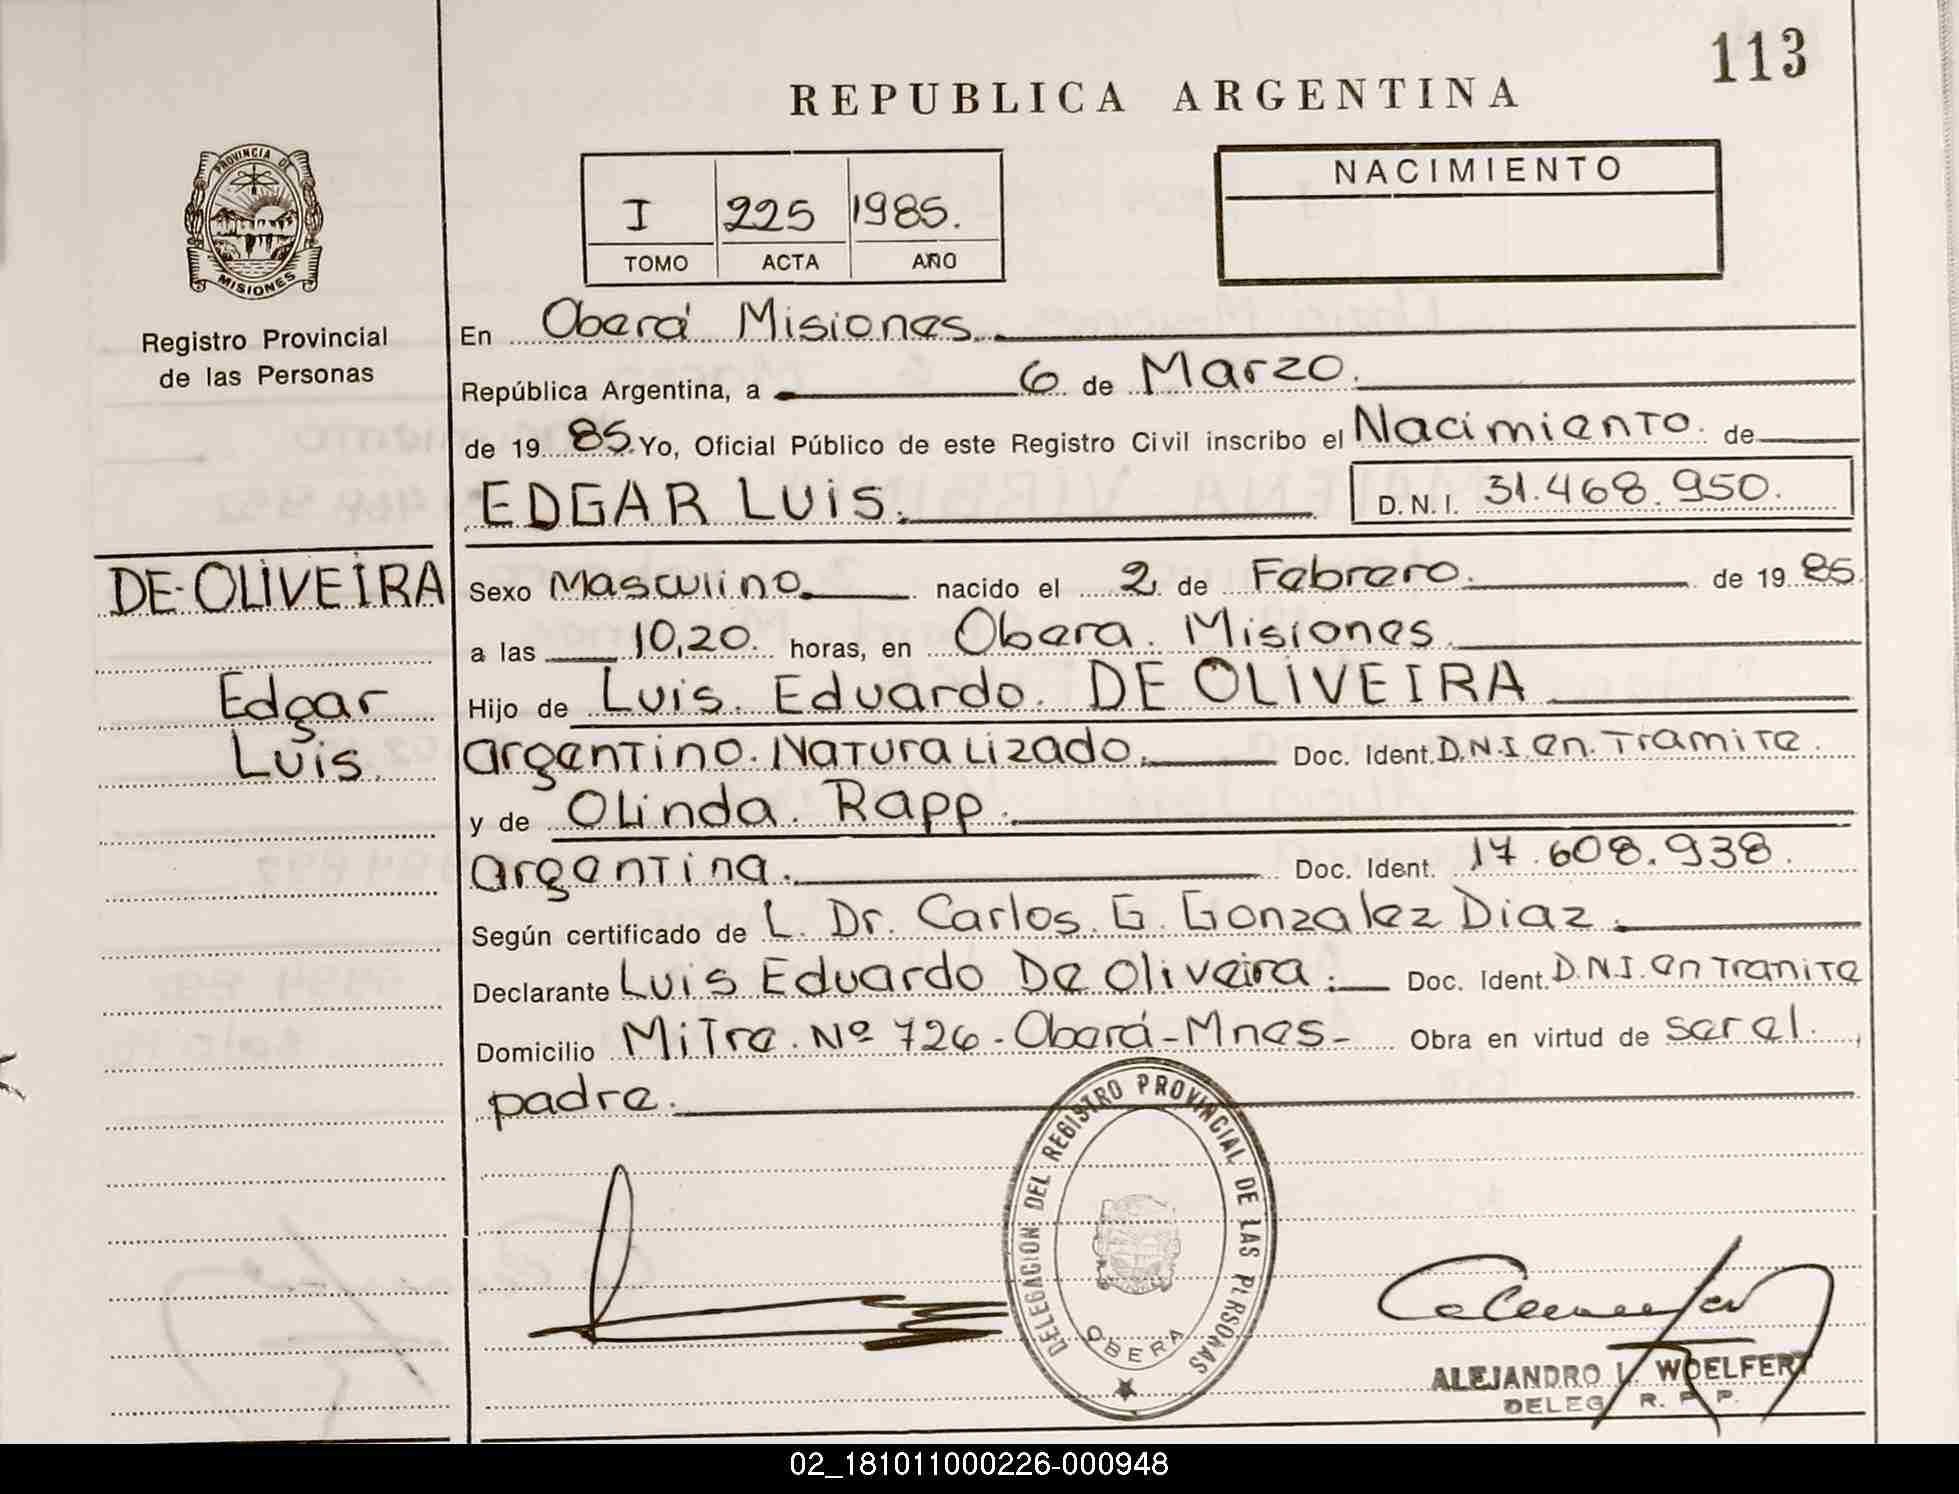 113
REPUBLICA ARGENTINA
PROVINCIA DE
MISIONES
Registro Provincial
de las Personas
I 225 1985.
TOMO ACTA AÑO
NACIMIENTO
En Oberá Misiones.
República Argentina, a 6 de Marzo.
de 19 85. Yo, Oficial Público de este Registro Civil inscribo el Nacimiento. de
EDGAR LUIS. D.N.I. 31.468.950.
DE-OLIVEIRA
Edgar
Luis.
Sexo Masculino nacido el 2 de Febrero. de 19 85.
a las 10,20. horas, en Obera. Misiones.
Hijo de Luis. Eduardo. DE OLIVEIRA
argentino. Naturalizado. Doc. Ident. D.N.I. en. Tramite.
y de Olinda. Rapp.
argentina. Doc. Ident. 17.608.938.
Según certificado de L. Dr. Carlos. G. Gonzalez Diaz.
Declarante Luis Eduardo De Oliveira. Doc. Ident. D.N.I. en Tranite
Domicilio Mitre. Nº 726 - Oberá - Mnes - Obra en virtud de ser el.
padre.
DELEGACION DEL REGISTRO PROVINCIAL DE LAS PERSONAS
OBERA
ALEJANDRO L. WOELFERT
DELEG R. P. P.
02_181011000226-000948